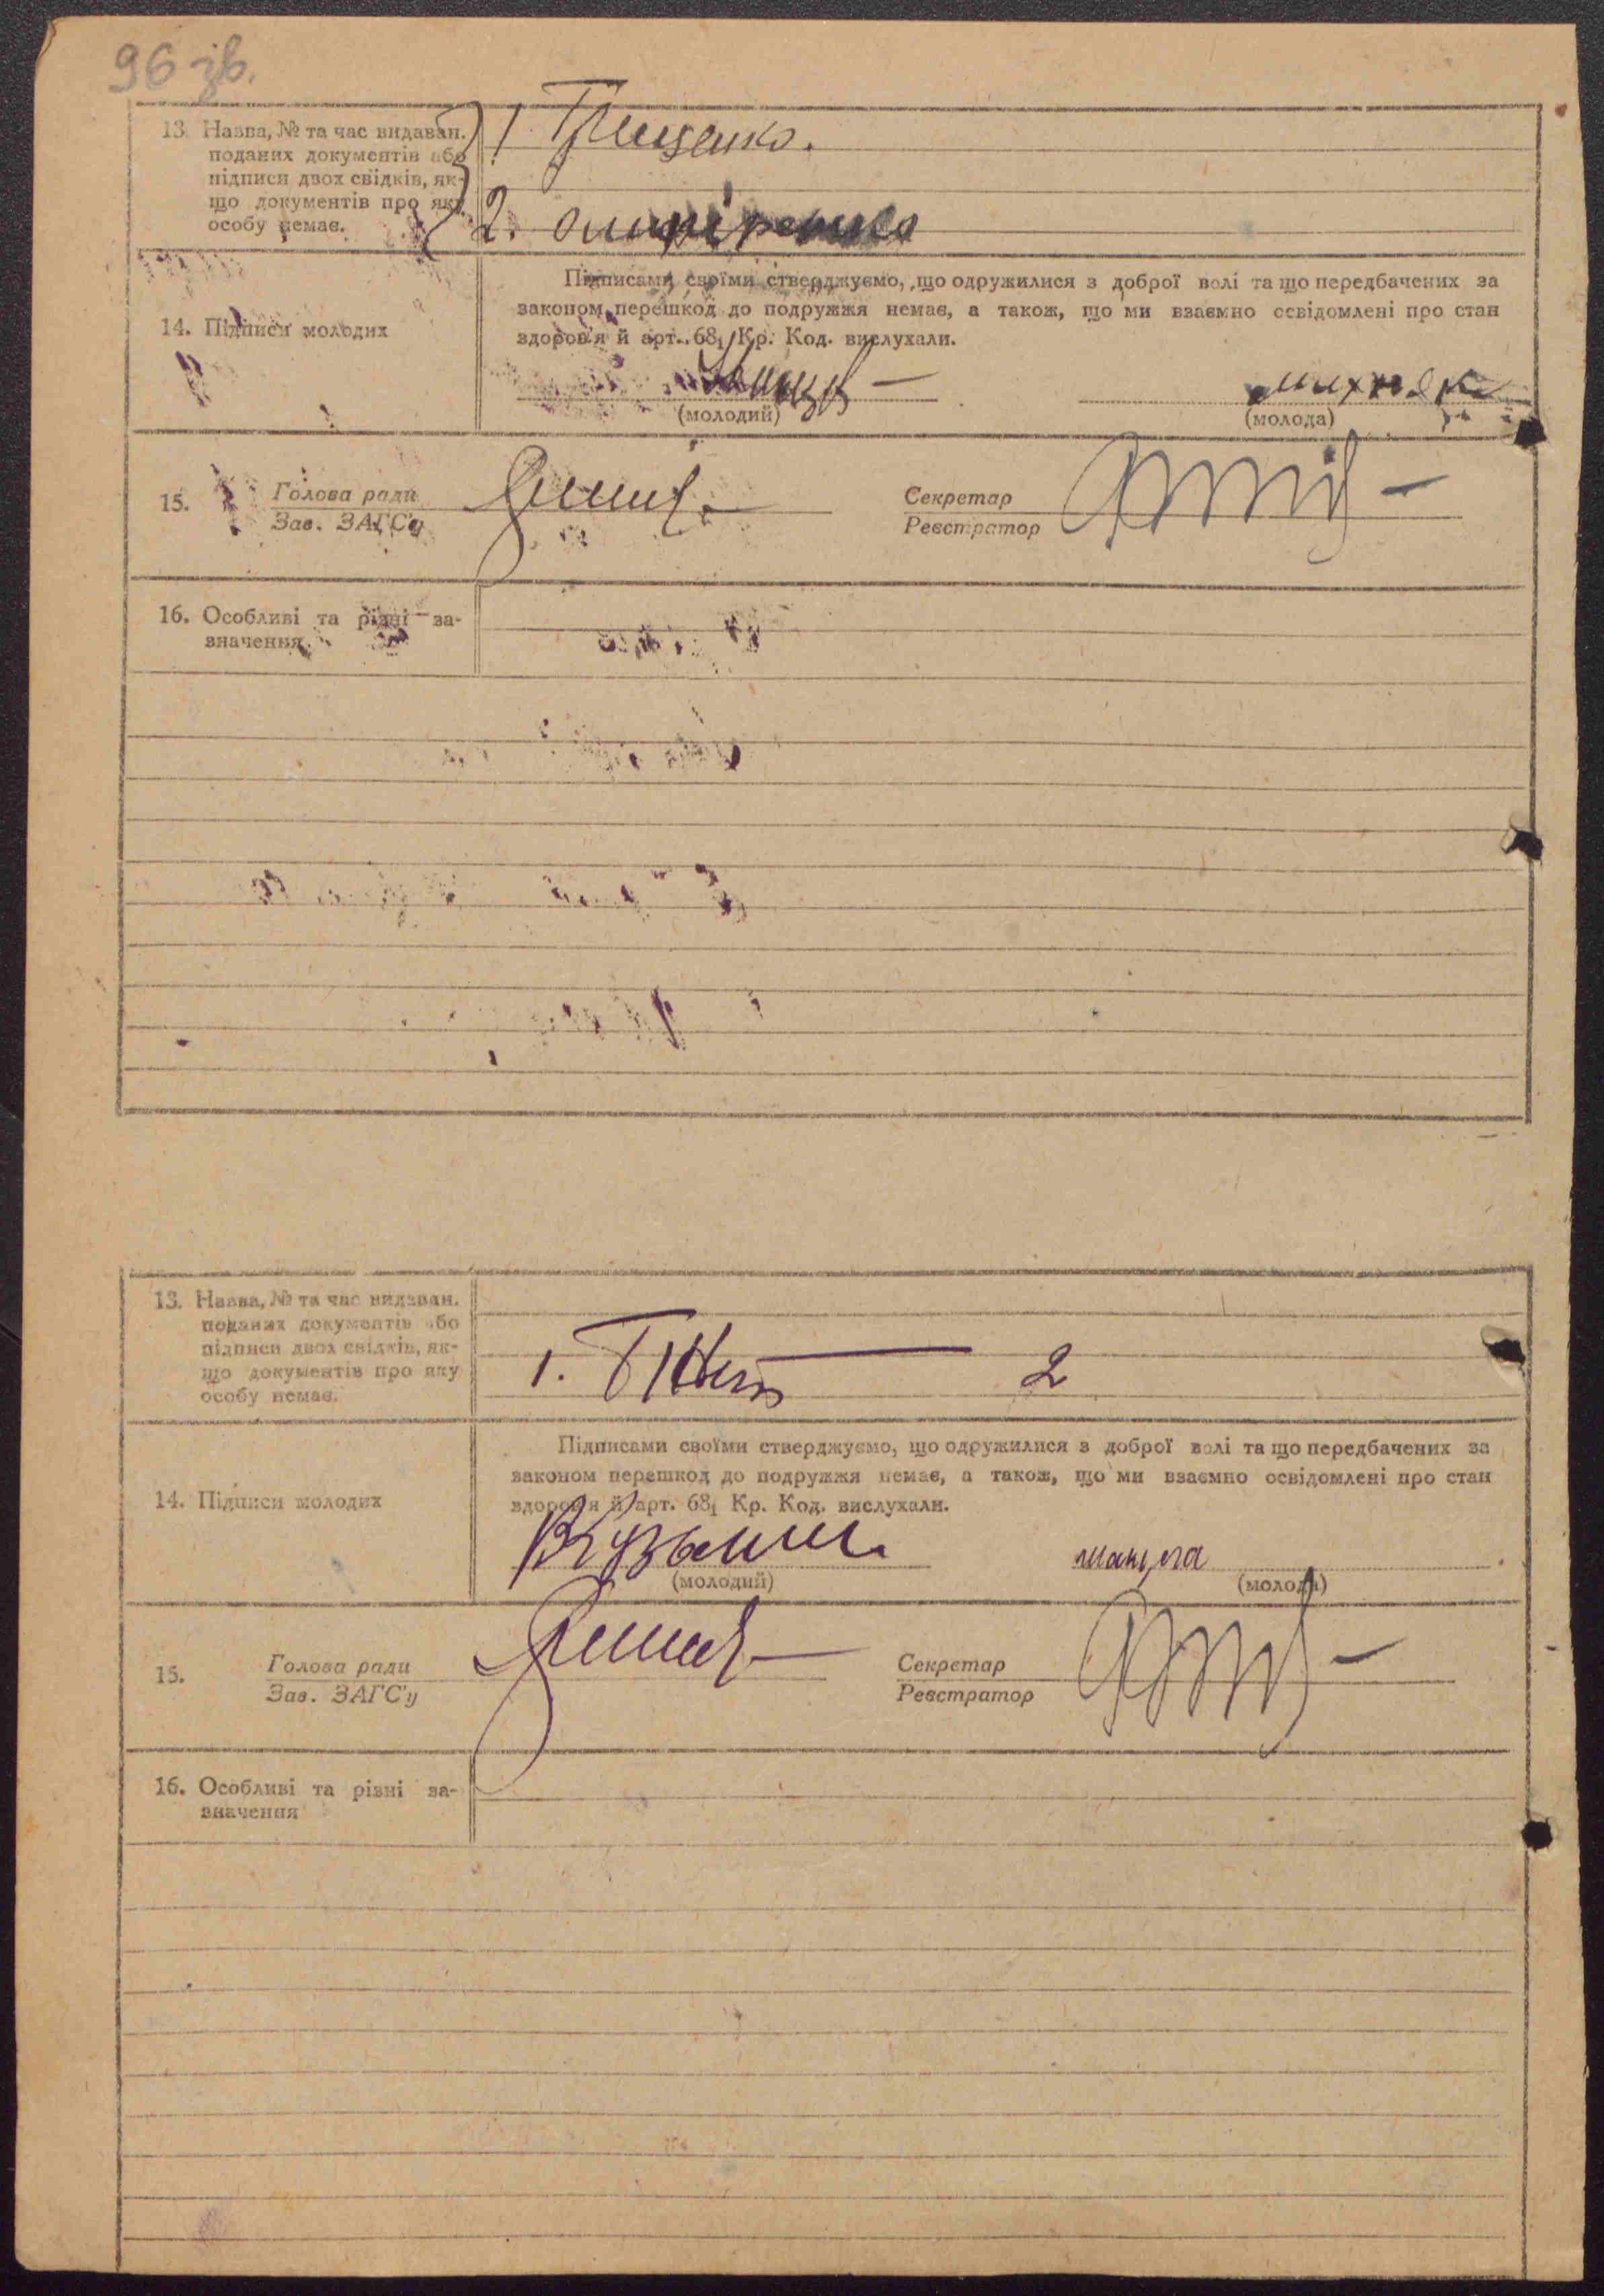 96 зв.
13. Назва, № та час видаван.
поданих документів або
підписи двох свідків, як-
що документів про яку
особу немає.
1. Грищенко.
2.
14. Підписи молодих
Підписами своїми стверджуємо, що одружилися з доброї волі та що передбачених за
законом перешкод до подружжя немає, а також, що ми взаємно освідомлені про стан
здоров'я й арт. 68₁ Кр. Код. вислухали.
(молодий)
(молода)
15. Голова ради
Зав. ЗАГС'у
Секретар
Реєстратор
16. Особливі та різні за-
значення
13. Назва, № та час видаван.
поданих документів або
підписи двох свідків, як-
що документів про яку
особу немає.
1.
2
14. Підписи молодих
Підписами своїми стверджуємо, що одружилися з доброї волі та що передбачених за
законом перешкод до подружжя немає, а також, що ми взаємно освідомлені про стан
здоров'я й арт. 68₁ Кр. Код. вислухали.
(молодий)
(молода)
15. Голова ради
Зав. ЗАГС'у
Секретар
Реєстратор
16. Особливі та різні за-
значення